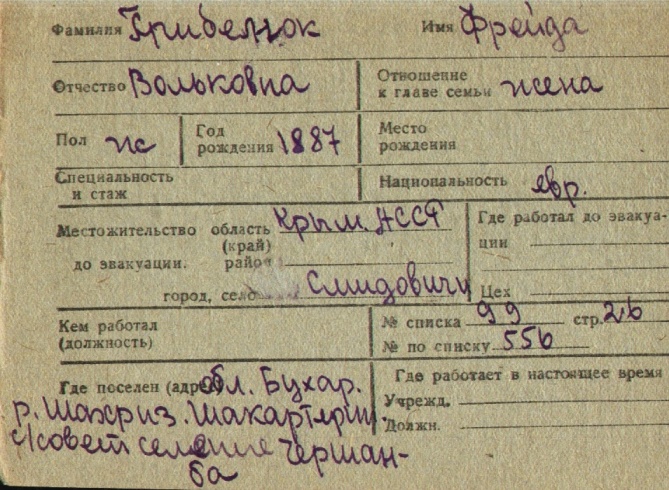 Фамилия Грибенюк Имя Фрейда
Отчество Вольковна Отношение
к главе семьи жена
Пол ж Год
рождения 1887 Место
рождения
Специальность
и стаж Национальность евр.
Местожительство область Крым. АССР
(край)
до эвакуации. район
город, село Смидовичи
Где работал до эвакуа-
ции
Цех
Кем работал
(должность)
№ списка 99 стр. 26
№ по списку 556
Где поселен (адрес) обл. Бухар.
р. Шахриз.
с/совет селение Чершан-
ба
Где работает в настоящее время
Учрежд.
Должн.